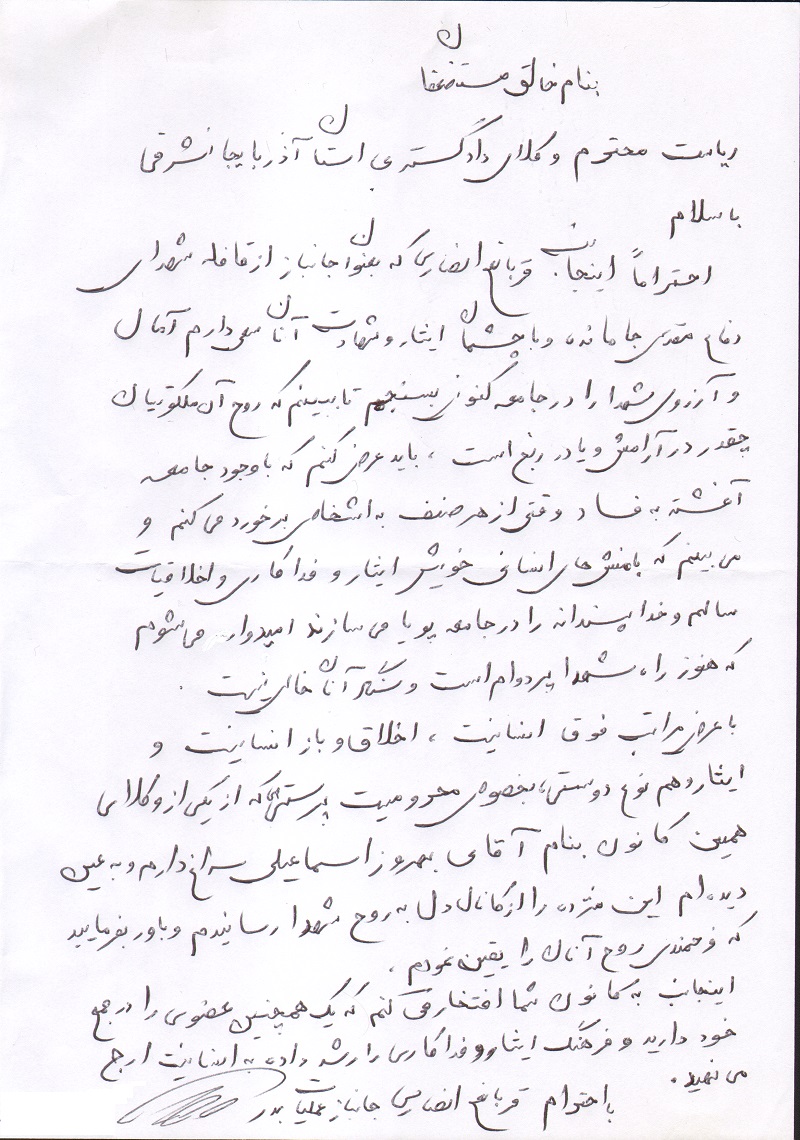 بنام خالق مستضعفان
ریاست محترم وکلای دادگستری استان آذربایجانشرقی
باسلام
احتراماً اینجانب قربانعلی انصاری که بعنوان جانباز از قافله شهدای
دفاع مقدس جامانده و با چشمان ایثار و شهادت آنان سعی دارم آمال
و آرزوی شهدا را در جامعه کنونی بسنجم تا ببینم که روح آن ملکوتیان
چقدر در آرامش و یا در رنج است ، باید عرض کنم که با وجود جامعه
آغشته به فساد وقتی از هر صنف به اشخاصی برخورد می کنم و
می بینم که با منش های انسانی خویش ایثار و فداکاری و اخلاقیات
سالم و خداپسندانه را در جامعه پویا می سازند امیدوار می شوم
که هنوز راه شهدا پر دوام است و سنگر آنان خالی نیست .
با عرض مراتب فوق انسانیت ، اخلاق و باز انسانیت و
ایثار و هم نوع دوستی ، بخصوص محرومیت پرستی که از یکی از وکلای
همین کانون بنام آقای بهروز اسماعیلی سراغ دارم و به عین
دیده ام این مژده را از کانال دل به روح شهدا رسانیدم و باور بفرمایید
که خرمندی روح آنان را یقین نمودم .
اینجانب به کانون شما افتخار می کنم که یک همچنین عضوی را در جمع
خود دارید و فرهنگ ایثار و فداکاری را رشد داده به انسانیت ارج
می نهید .
با احترام قربانعلی انصاری جانباز عملیات بدر